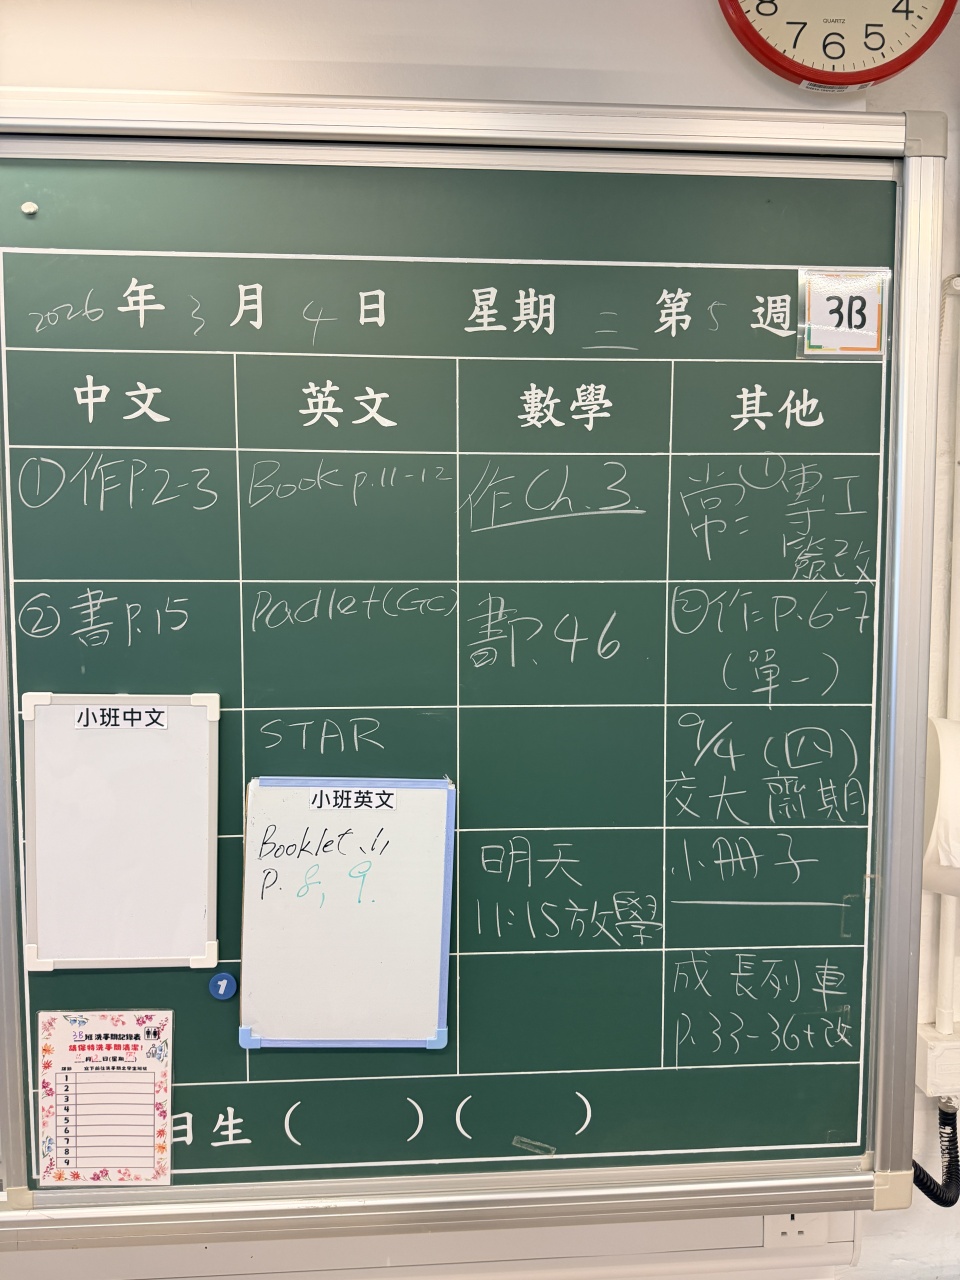 8 7 6 5 4
QUARTZ
2026年3月4日 星期三 第5週
3B
中文 英文 數學 其他
①作P.2-3
②書P.15
小班中文
Book p.11-12
Padlet(GC)
STAR
小班英文
Booklet
p. 8, 9.
作Ch.3
書P.46
明天
11:15放學
常:①專工
簽改
②作:P.6-7
(單一)
9/4 (四)
交大齋期
小冊子
成長列車
P.33-36+改
1
3B班洗手間記錄表
請保持洗手間清潔!
1
2
3
4
5
6
7
8
9
日生( )( )